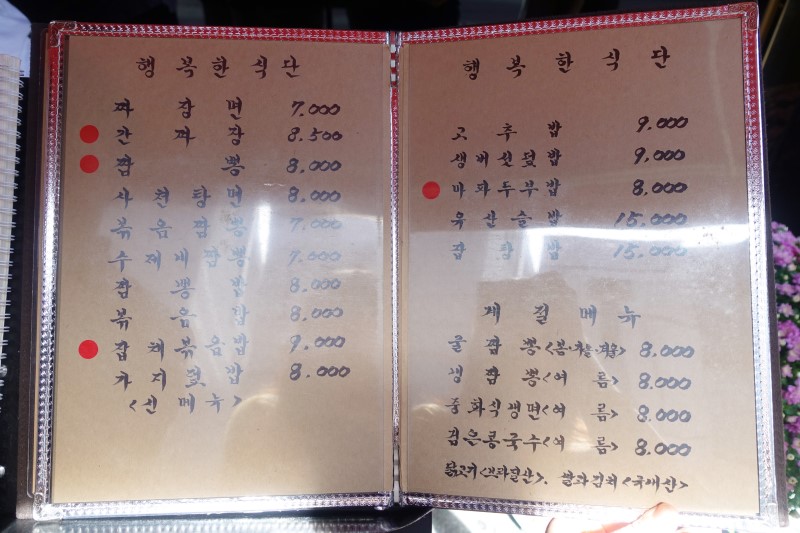 행복한식단
짜장면 7.000
간짜장 8.500
짬뽕 8.000
사천탕면 8.000
볶음짬뽕 7.000
수제비짬뽕 7.000
짬뽕밥 8.000
볶음밥 8.000
잡채볶음밥 9.000
가지덮밥 8.000
<신메뉴>
행복한식단
고추밥 9.000
생버섯덮밥 9.000
마파두부밥 8.000
유산슬밥 15.000
잡탕밥 15.000
계절메뉴
굴짬뽕<봄·가을·겨울> 8.000
냉짬뽕<여름> 8.000
중화식냉면<여름> 8.000
검은콩국수<여름> 8.000
닭고기<브라질산>. 쌀과김치<국내산>